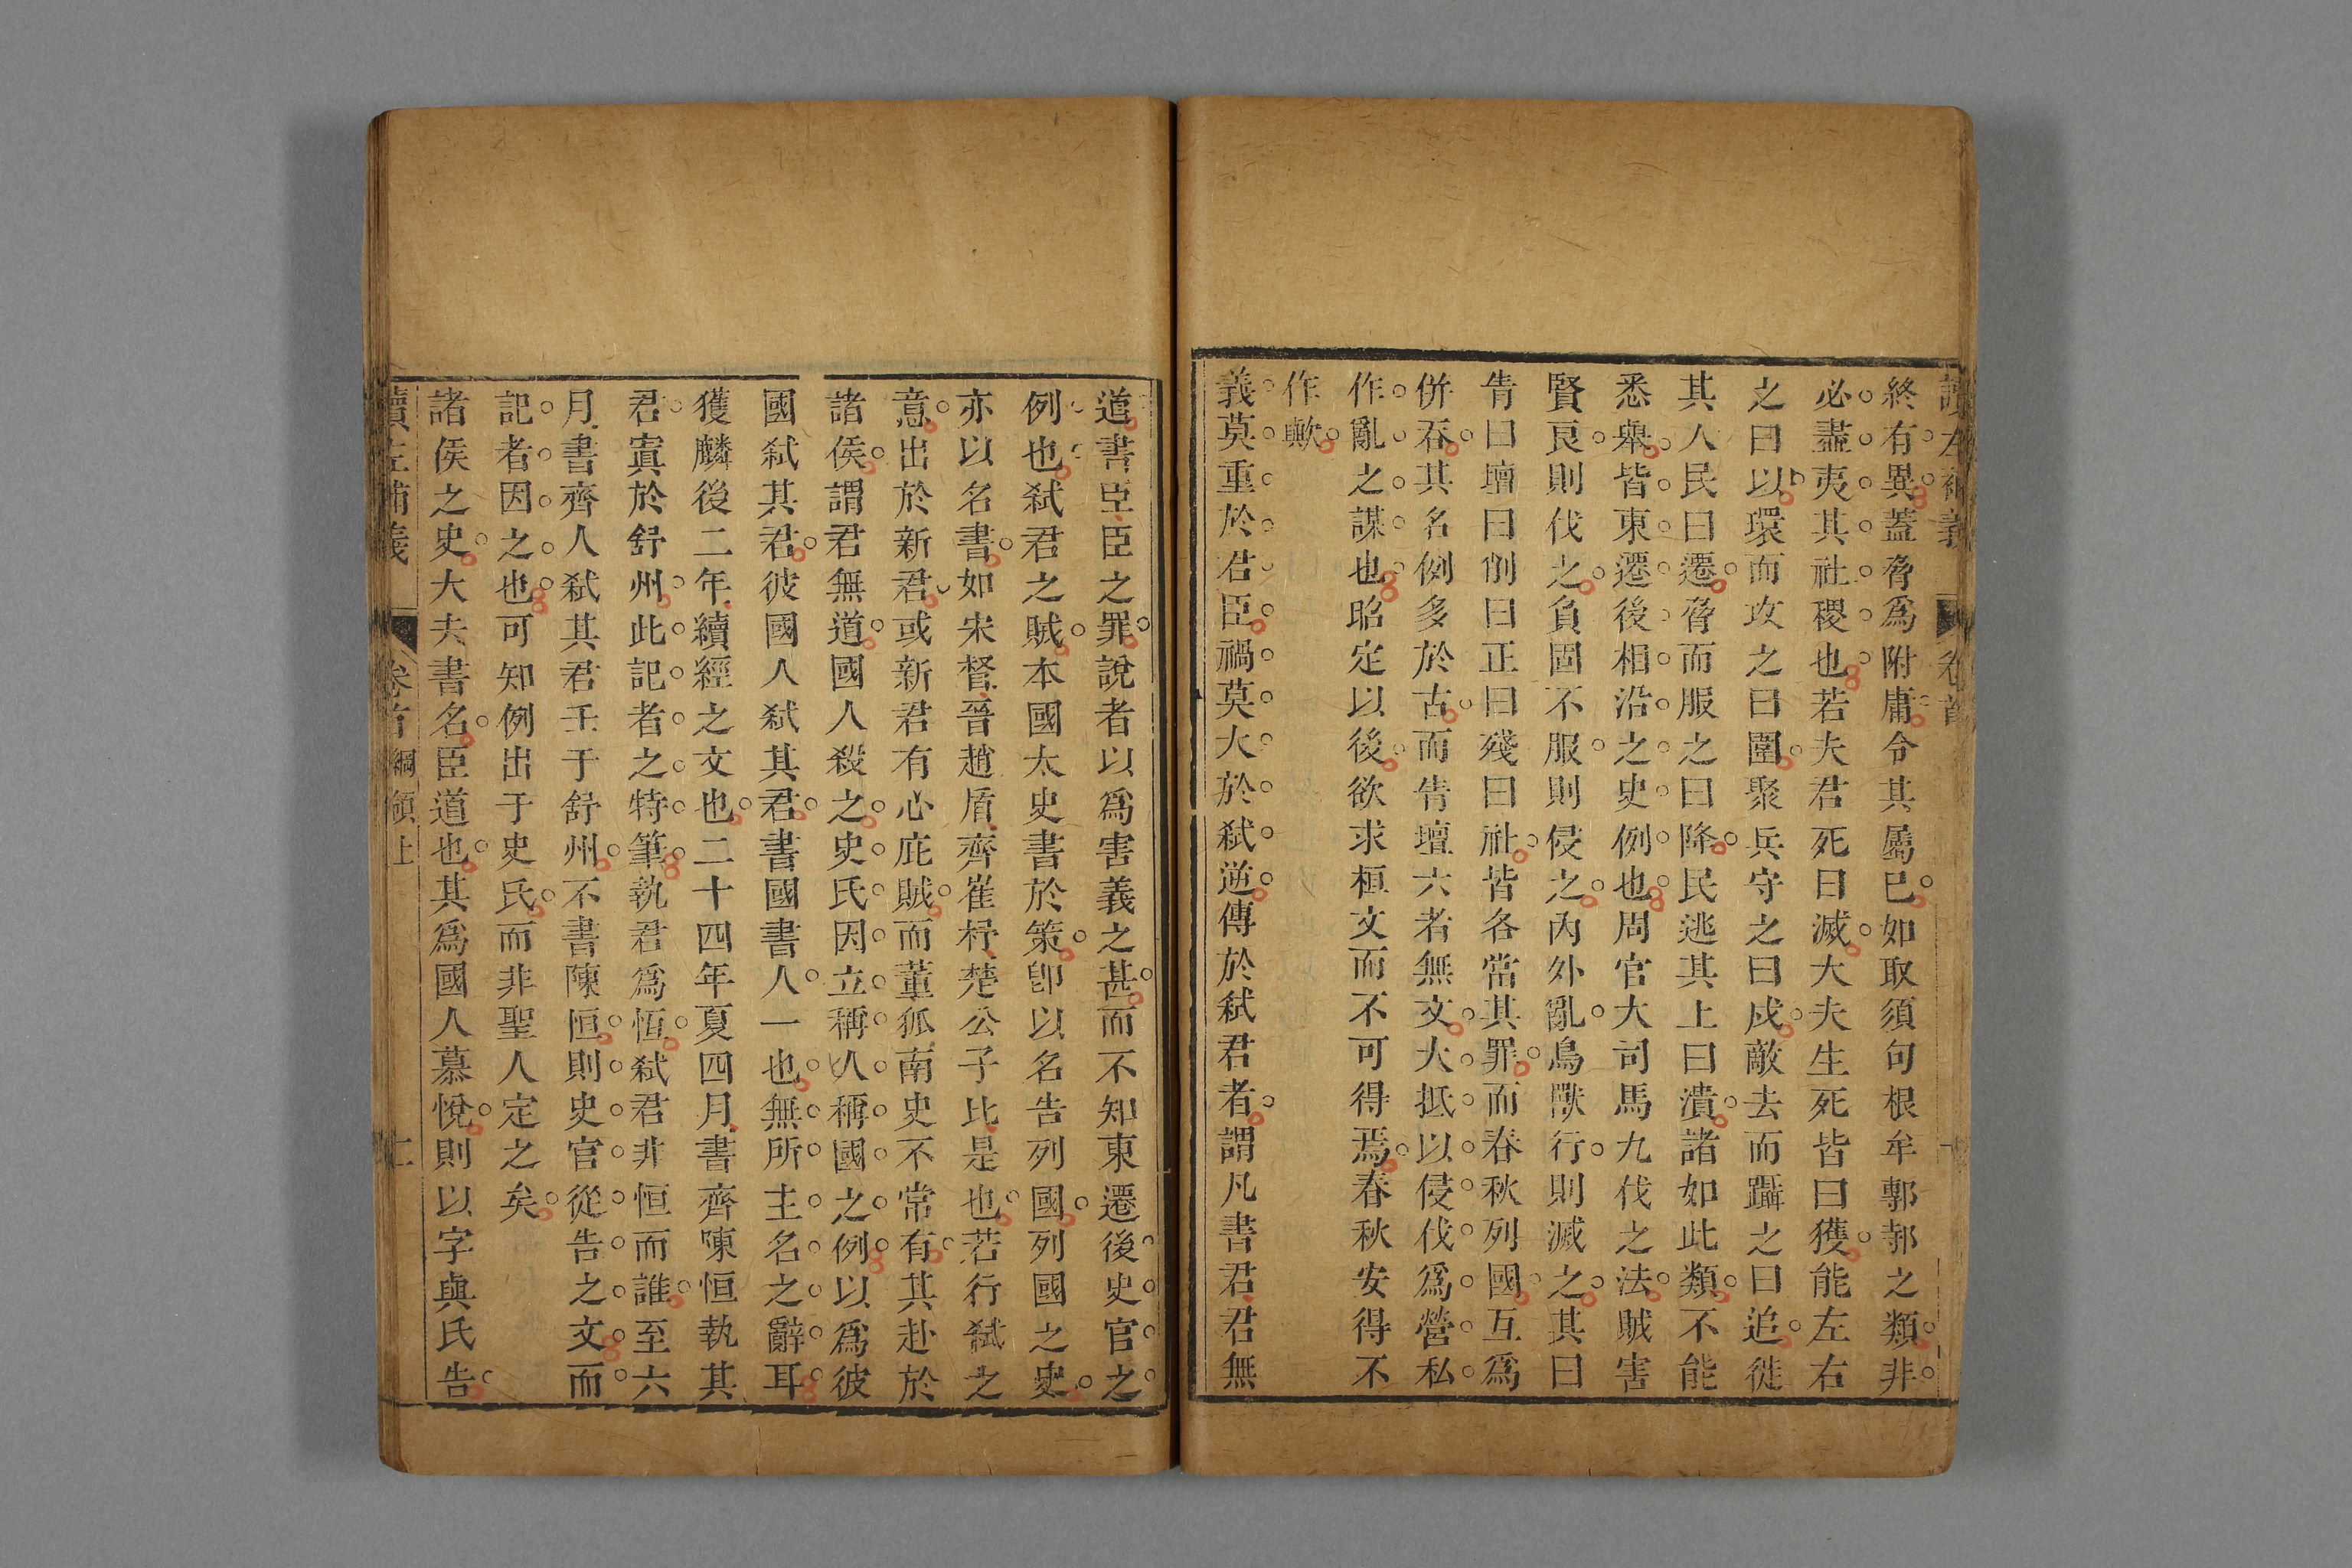 讀左補義 卷首
終有異蓋脅爲附庸令其屬已如取須句根牟鄟邿之類非
必盡夷其社稷也若夫君死曰滅大夫生死皆曰獲能左右
之曰以環而攻之曰圍聚兵守之曰戍敵去而躡之曰追徙
其人民曰遷脅而服之曰降民逃其上曰潰諸如此類不能
悉舉皆東遷後相沿之史例也周官大司馬九伐之法賊害
賢良則伐之負固不服則侵之內外亂鳥獸行則滅之其曰
眚曰壇曰削曰正曰殘曰社皆各當其罪而春秋列國互爲
併吞其名例多於古而眚壇六者無文大抵以侵伐爲營私
作亂之謀也昭定以後欲求桓文而不可得焉春秋安得不
作歟
義莫重於君臣禍莫大於弒逆傳於弒君者謂凡書君君無
道書臣臣之罪說者以爲害義之甚而不知東遷後史官之
例也弒君之賊本國太史書於策卽以名告列國列國之史
亦以名書如宋督晉趙盾齊崔杼楚公子比是也若行弒之
意出於新君或新君有心庇賊而董狐南史不常有其赴於
諸侯謂君無道國人殺之史氏因立稱人稱國之例以爲彼
國弒其君彼國人弒其君書國書人一也無所主名之辭耳
獲麟後二年續經之文也二十四年夏四月書齊陳恒執其
君寘於舒州此記者之特筆執君爲恆弒君非恒而誰至六
月書齊人弒其君壬于舒州不書陳恒則史官從告之文而
記者因之也可知例出于史氏而非聖人定之矣
諸侯之史大夫書名臣道也其爲國人慕悅則以字與氏告
讀左補義 卷首 綱領上